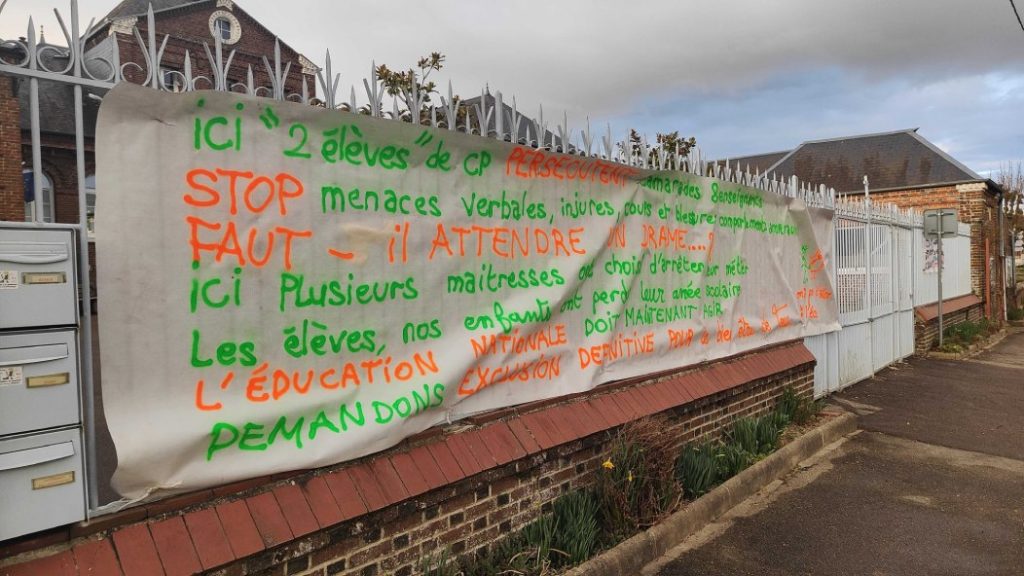 ici "2 élèves" de CP PERSECUTENT camarades enseignants
STOP menaces verbales, injures, coups et blessures comportements
FAUT-il ATTENDRE UN DRAME....?
ici Plusieurs maitresses ont choisi d'arrêter métier
Les élèves, nos enfants ont perdu leur année scolaire
L'ÉDUCATION NATIONALE DOIT MAINTENANT AGIR
DEMANDONS EXCLUSION DEFINITIVE POUR